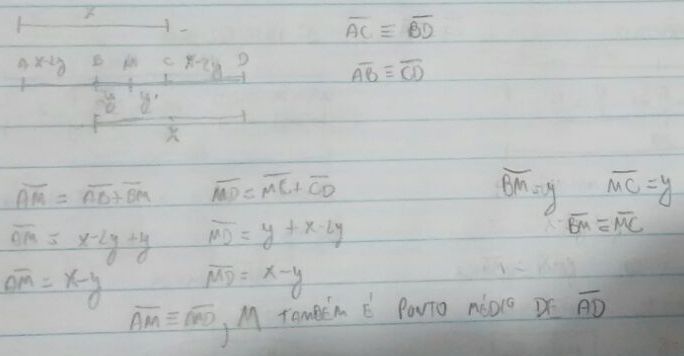 x
A̅C̅ ≡ B̅D̅
A x-2y B M C x-2y D
A̅B̅ ≡ C̅D̅
y y
x
A̅M̅ = A̅B̅ + B̅M̅
M̅D̅ = M̅C̅ + C̅D̅
B̅M̅ = y M̅C̅ = y
A̅M̅ = x-2y+y
M̅D̅ = y + x-2y
B̅M̅ ≡ M̅C̅
A̅M̅ = x-y
M̅D̅ = x-y
A̅M̅ ≡ M̅D̅, M TAMBÉM É PONTO MÉDIO DE A̅D̅